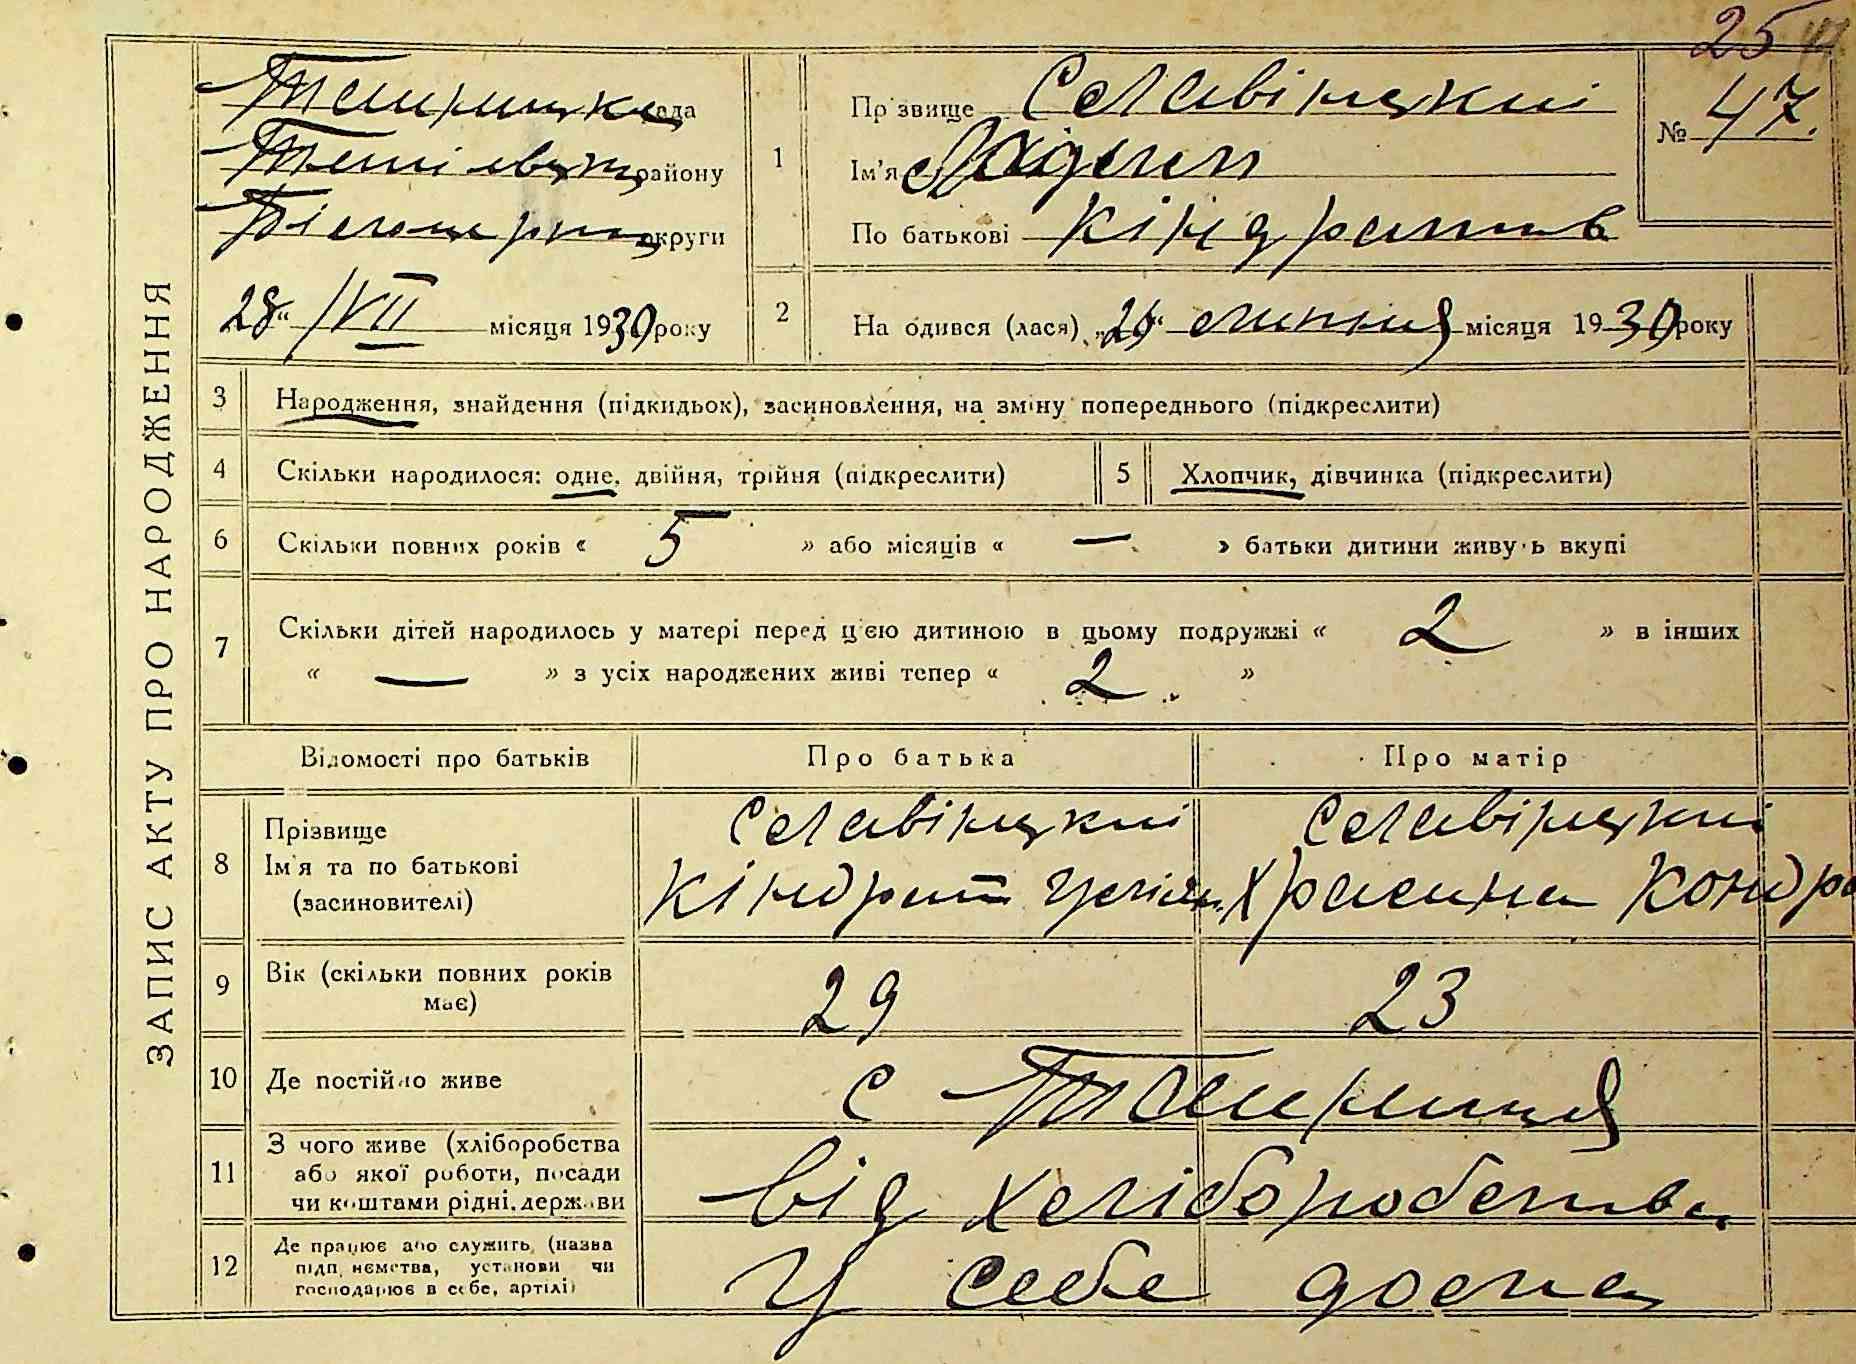 25
ЗАПИС АКТУ ПРО НАРОДЖЕННЯ
рада
району
округи
28" /VII місяця 1930 року
1
Прізвище Селавінцкий
Ім'я
По батькові Кіндратов
№ 47.
2
На одився (лася) „ “ липня місяця 1930 року
3
Народження, знайдення (підкидьок), засиновлення, на зміну попереднього (підкреслити)
4
Скільки народилося: одне, двійня, трійня (підкреслити)
5
Хлопчик, дівчинка (підкреслити)
6
Скільки повних років « 5 » або місяців « — » батьки дитини живуть вкупі
7
Скільки дітей народилось у матері перед цією дитиною в цьому подружжі « 2 » в інших
« — » з усіх народжених живі тепер « 2 »
Відомості про батьків
Про батька
Про матір
8
Прізвище
Ім'я та по батькові
(засиновителі)
Селавінцкий
Кіндрат
Селавінцкий
Кондра
9
Вік (скільки повних років
має)
29
23
10
Де постійно живе
с
11
З чого живе (хліборобства
або якої роботи, посади
чи коштами рідні, держави
від хеліборобства
12
Де працює або служить, (назва
підп иємства, установи чи
господарює в себе, артілі)
У себе дома